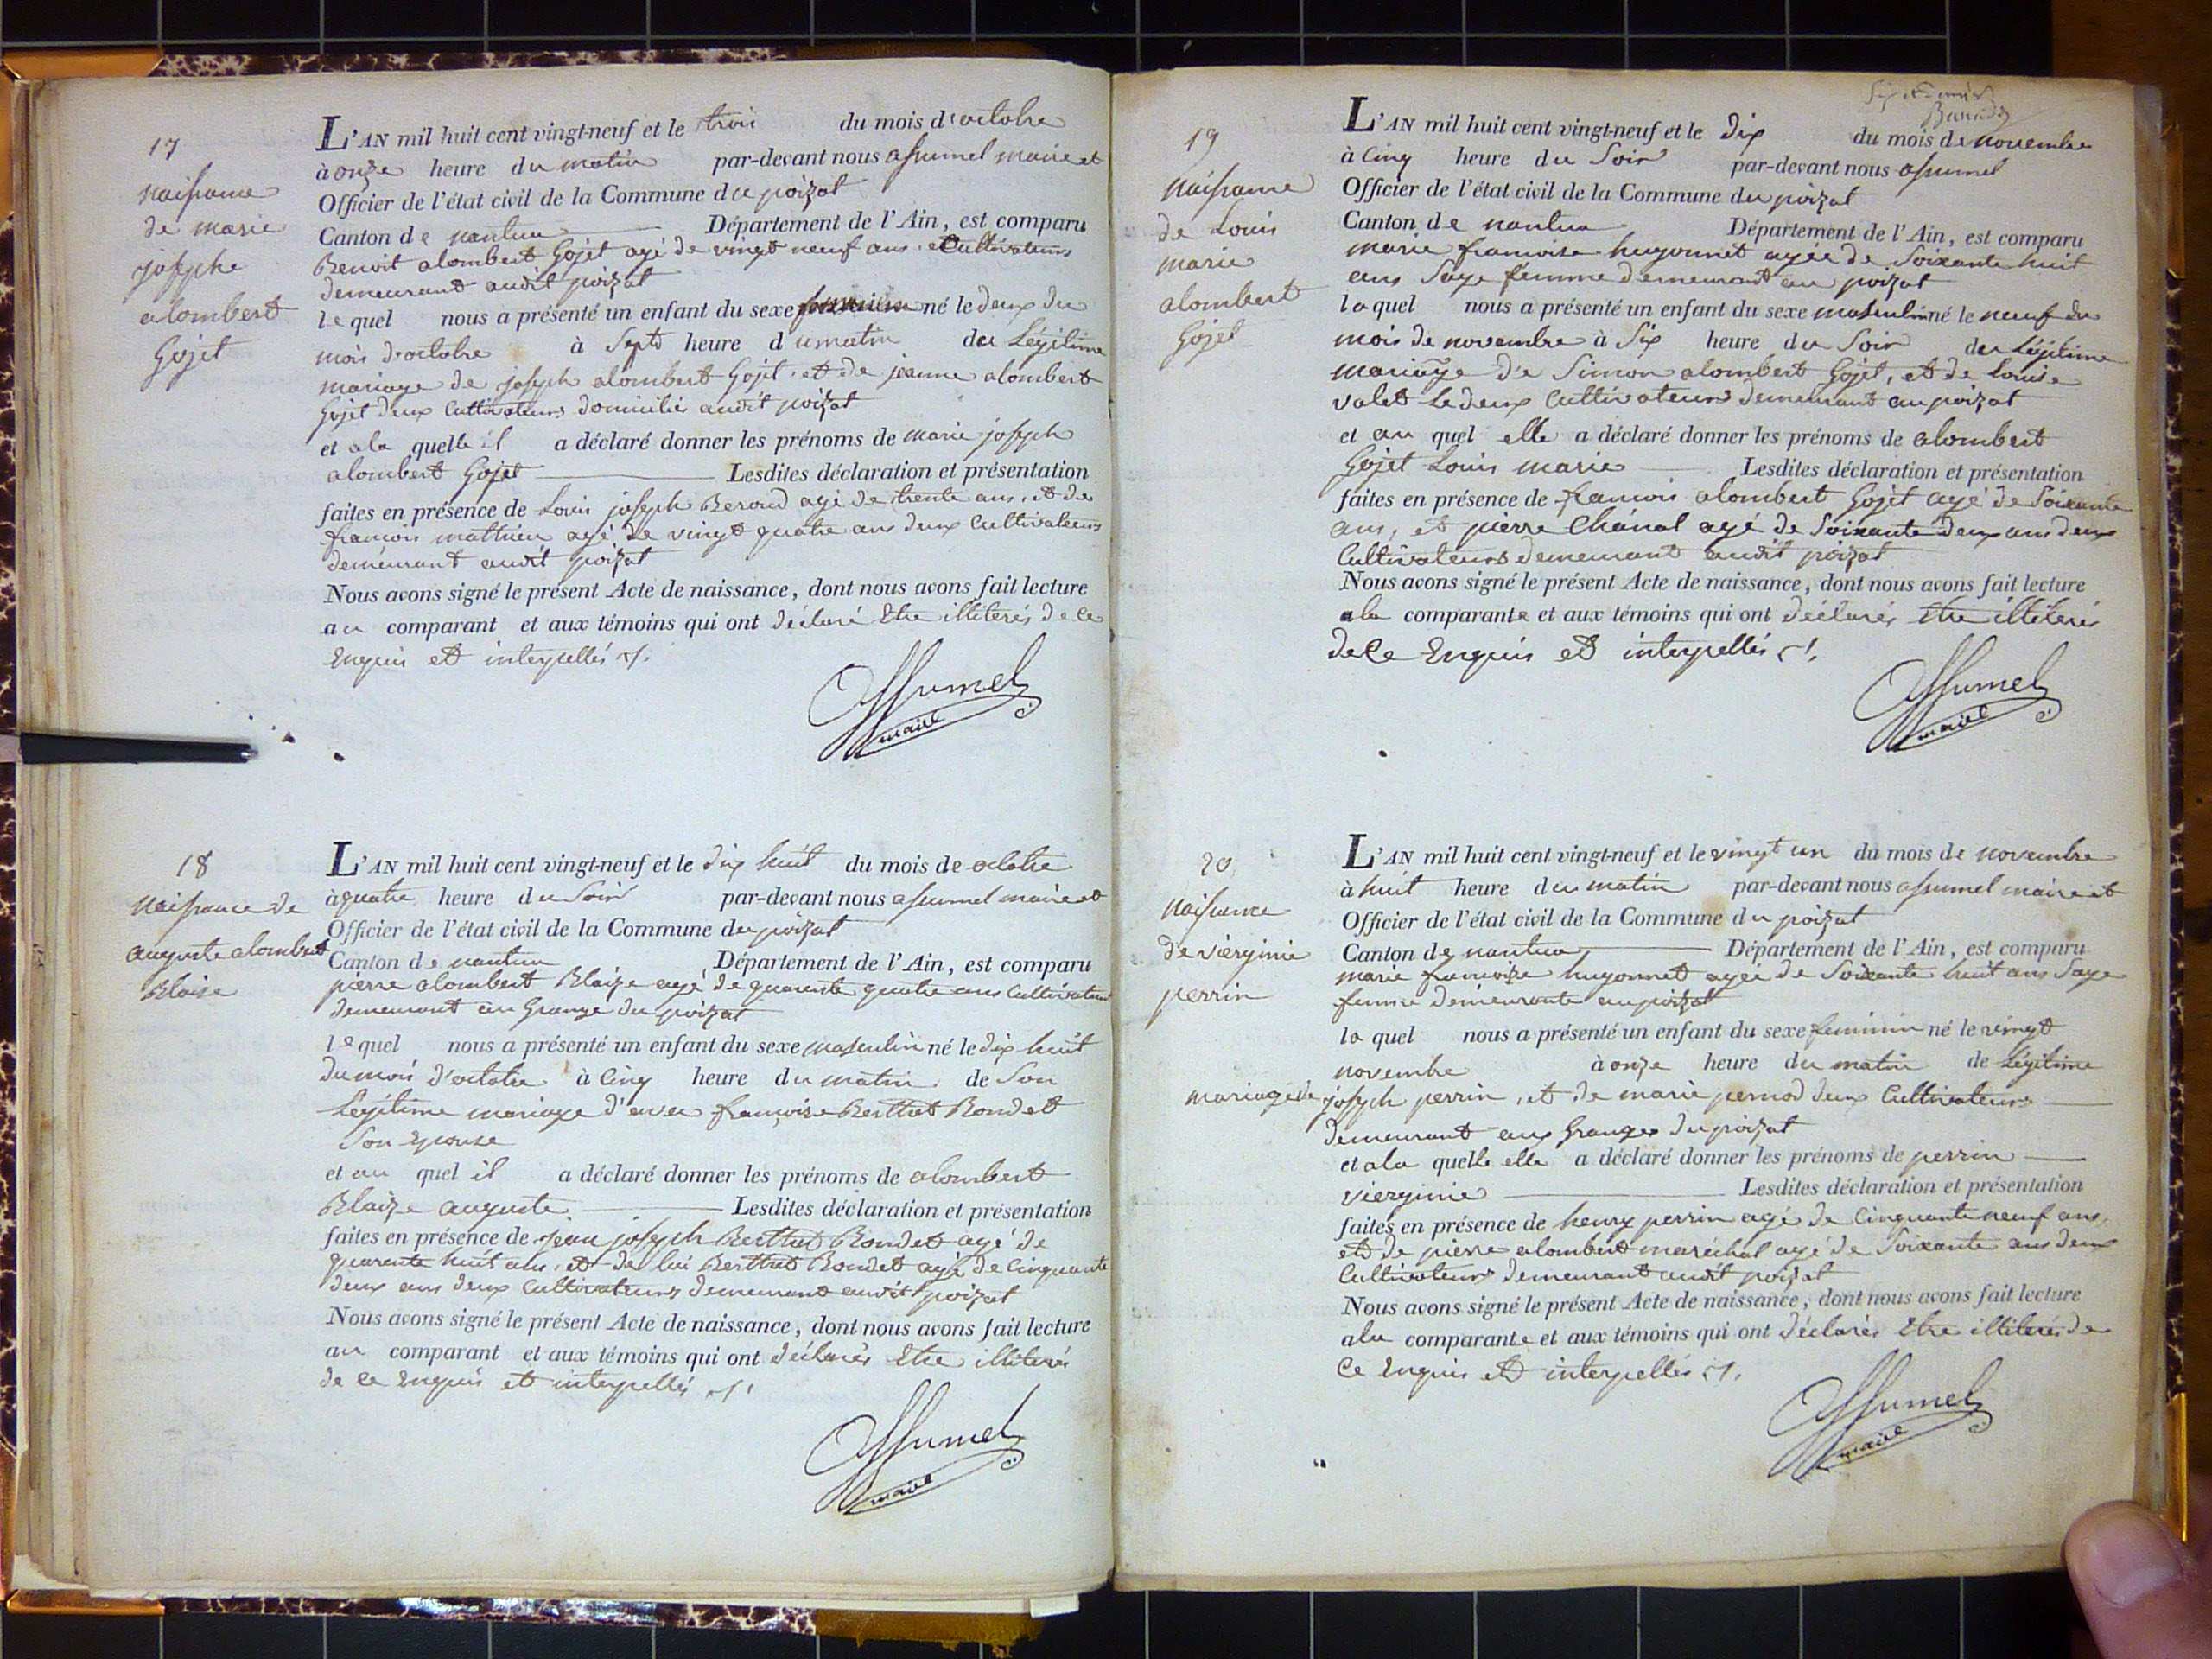 17
naissance
de marie
josephe
alombert
Gojet
L'AN mil huit cent vingt-neuf et le trois du mois d'octobre
à onze heure du matin par-devant nous assumel maire et
Officier de l'état civil de la Commune du poizat
Canton de nantua Département de l'Ain, est comparu
Benoit alombert Gojet agé de vingt neuf ans Cultivateurs
demeurant audit poizat
lequel nous a présenté un enfant du sexe feminin né le deux du
mois d'octobre à Sept heure du matin du Légitime
mariage de joseph alombert Gojet et de jeanne alombert
Gojet deux Cultivateurs domiciliés audit poizat
et ala quelle il a déclaré donner les prénoms de marie joseph
alombert Gojet Lesdites déclaration et présentation
faites en présence de Louis joseph Beroud agé de trente ans, et de
francois matthieu agé de vingt quatre ans deux Cultivateurs
demeurant audit poizat
Nous avons signé le présent Acte de naissance, dont nous avons fait lecture
au comparant et aux témoins qui ont déclaré Etre illiterés de ce
Enquis et interpellés
Assumel
maire
18
naissance de
auguste alombert
Blaise
L'AN mil huit cent vingt-neuf et le dix huit du mois de octobre
à quatre heure du Soir par-devant nous assumel maire et
Officier de l'état civil de la Commune du poizat
Canton de nantua Département de l'Ain, est comparu
pierre alombert Blaize agé de quarente quatre ans Cultivateur
demeurant au Grange du poizat
lequel nous a présenté un enfant du sexe masculin né le dix huit
du mois d'octobre à Cinq heure du matin de Son
Legitime mariage d'avec francoise Berthet Bondet
Son Epouse
et au quel il a déclaré donner les prénoms de alombert
Blaize auguste Lesdites déclaration et présentation
faites en présence de jean joseph Berthet Bondet agé de
quarente huit ans, et de lui Berthet Bondet agé de Cinquante
deux ans deux Cultivateurs demeurant audit poizat
Nous avons signé le présent Acte de naissance, dont nous avons fait lecture
au comparant et aux témoins qui ont déclarés Etre illiterés
de ce Enquis et interpellés
Assumel
maire
19
naissance
de Louis
marie
alombert
Gojet
L'AN mil huit cent vingt-neuf et le dix du mois de novembre
à Cinq heure du Soir par-devant nous assumel
Officier de l'état civil de la Commune du poizat
Canton de nantua Département de l'Ain, est comparu
marie francoise hugonnet agée de Soixante huit
ans Sage femme demeurant au poizat
laquel nous a présenté un enfant du sexe masculin né le neuf du
mois de novembre à Six heure du Soir du Légitime
mariage de Simon alombert Gojet, et de Louise
valet Le deux Cultivateurs demeurant au poizat
et au quel elle a déclaré donner les prénoms de alombert
Gojet Louis marie Lesdites déclaration et présentation
faites en présence de francois alombert Gojet agé de Soixante
ans, et pierre Chânal agé de Soixante deux ans deux
Cultivateurs demeurant audit poizat
Nous avons signé le présent Acte de naissance, dont nous avons fait lecture
ala comparante et aux témoins qui ont déclarés Etre illiterés
de Ce Enquis et interpellés
Assumel
maire
20
naissance
de vierginie
perrin
L'AN mil huit cent vingt-neuf et le vingt un du mois de novembre
à huit heure du matin par-devant nous assumel maire et
Officier de l'état civil de la Commune du poizat
Canton de nantua Département de l'Ain, est comparu
marie francoize hugonnet agée de Soixante huit ans Sage
femme demeurante au poizat
la quel nous a présenté un enfant du sexe feminin né le vingt
novembre à onze heure du matin de Légitime
mariage de joseph perrin, et de marie pernod deux Cultivateurs
demeurant aux Granges du poizat
et ala quelle elle a déclaré donner les prénoms de perrin
vierginie Lesdites déclaration et présentation
faites en présence de henry perrin agé de Cinquante neuf ans,
et de pierre alombert maréchal agé de Soixante ans deux
Cultivateurs demeurant audit poizat
Nous avons signé le présent Acte de naissance, dont nous avons fait lecture
ala comparante et aux témoins qui ont déclarés Etre illiterés de
Ce Enquis et interpellés
Assumel
maire